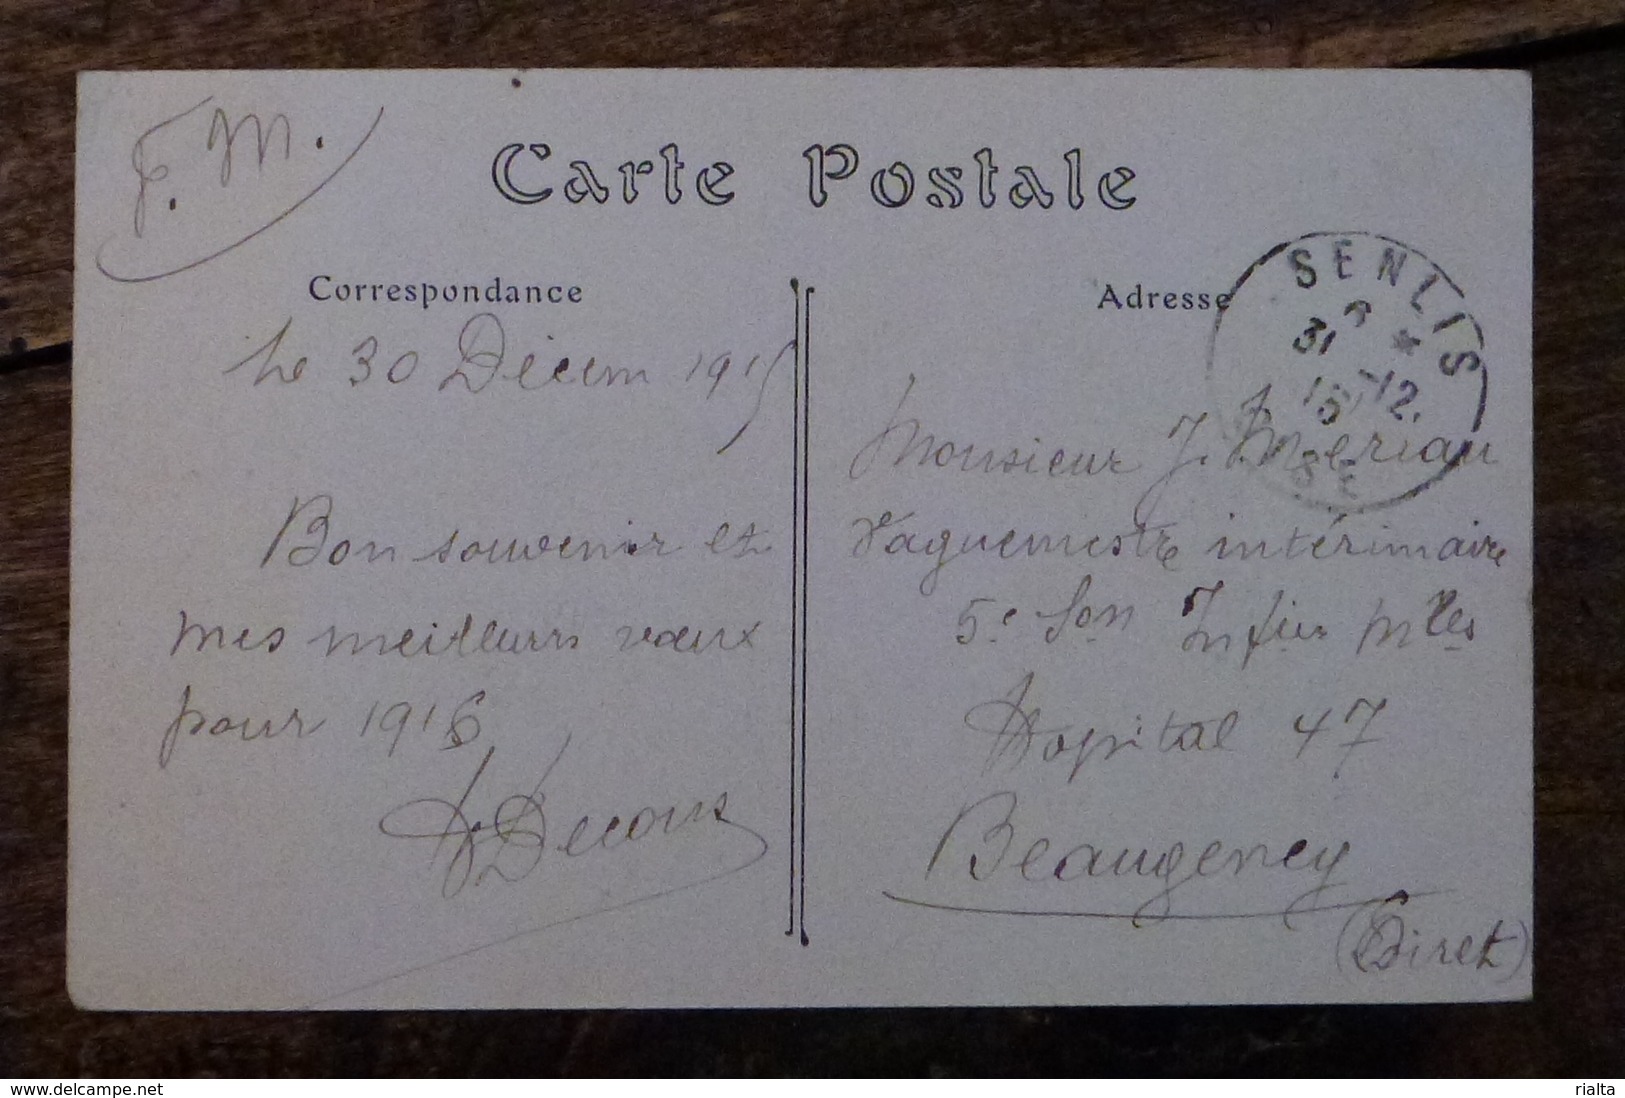 F. M.
Carte Postale
Correspondance
le 30 Décem 1915
Bon souvenir et
mes meilleurs vœux
pour 1916
Decoux
Adresse
SENLIS
31 -12
15
SE
Monsieur J. Meriau
Vaguemestre intérimaire
5e Son Infier Mles
Hopital 47
Beaugency
(Loiret)
www.delcampe.net
rialta